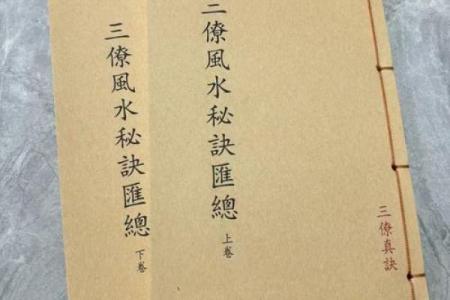 三僚真訣
三僚風水秘訣匯總
上卷
三僚風水秘訣匯總
下卷